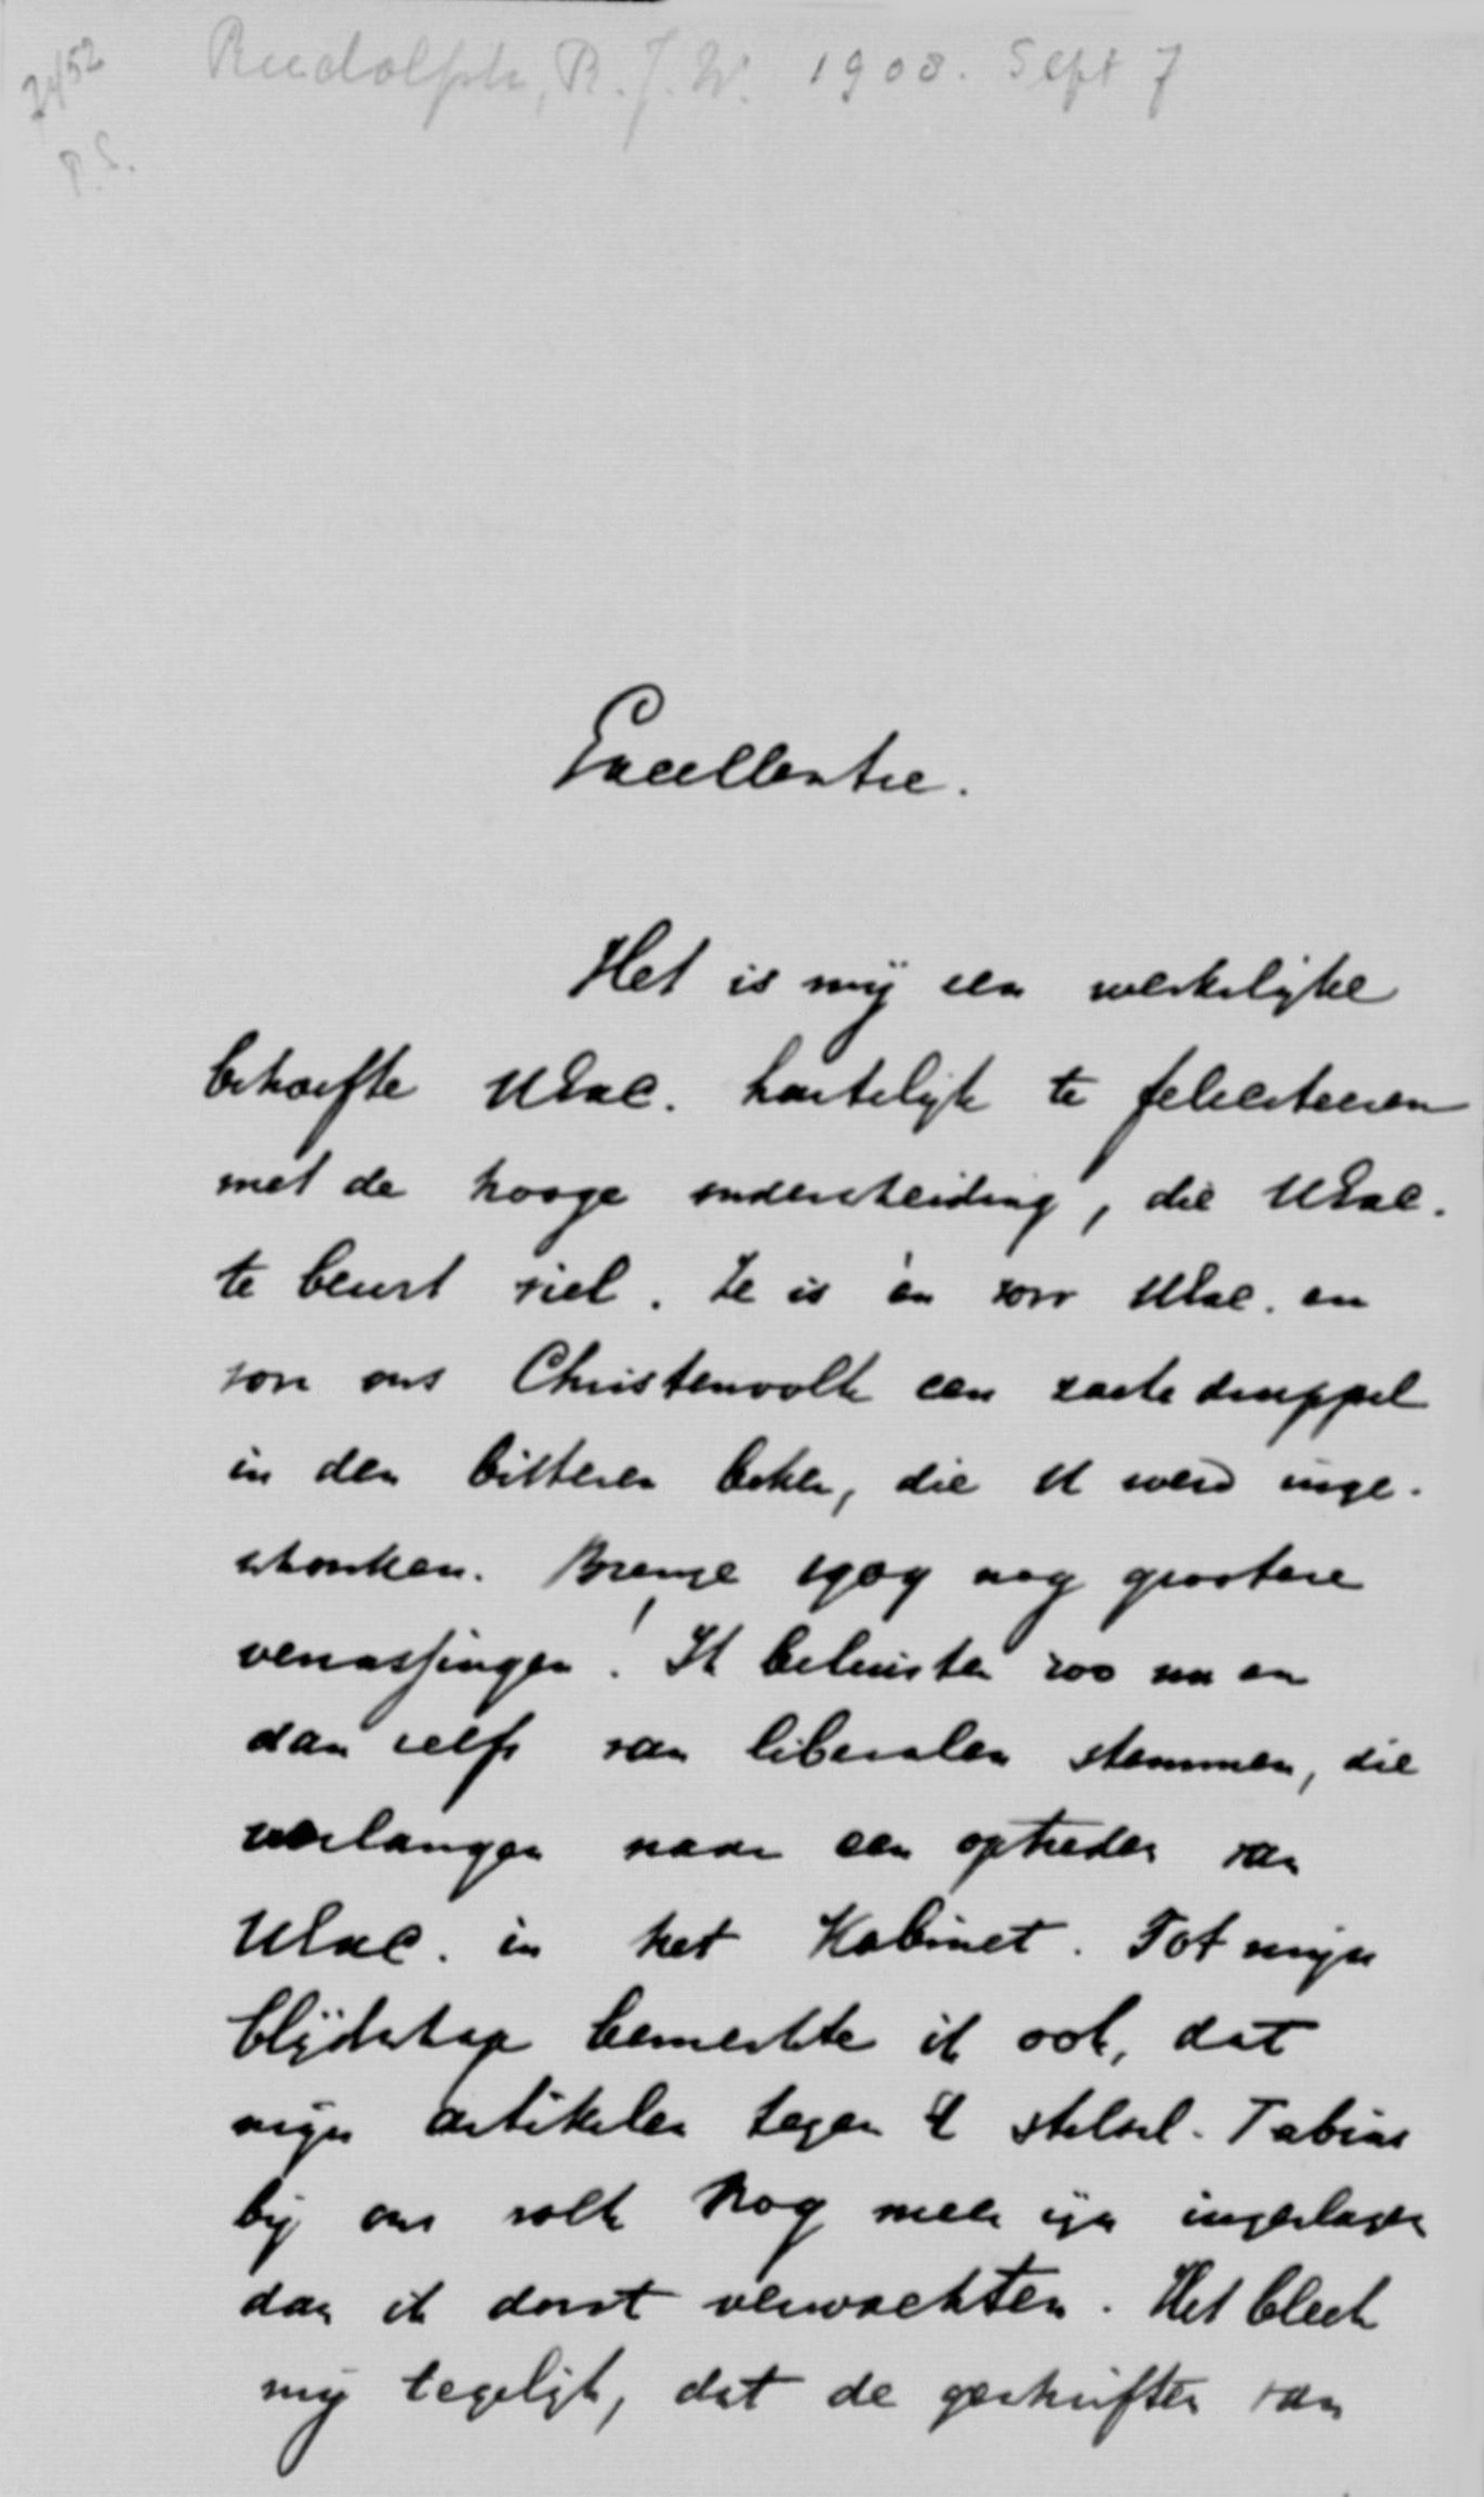 7452
P.S.
Rudolph, R.J.W. 1908. Sept 7
Excellentie.
Het is mij een werkelijke
behoefte UExc. hartelijk te feliciteeren
met de hooge onderscheiding, die UExc.
te beurt viel. Ze is èn voor UExc. en
voor ons Christenvolk een zoete druppel
in den bitteren beker, die U werd inge-
schonken. Brenge 1909 nog grootere
verrassingen! Ik beluister zoo nu en
dan zelfs van liberalen stemmen, die
verlangen naar een optreden van
UExc. in het Kabinet. Tot mijn
blijdschap bemerkte ik ook, dat
mijn artikelen tegen 't stelsel-Talma
bij ons volk nog meer zijn ingeslagen
dan ik dorst verwachten. Het bleek
mij tegelijk, dat de geschriften van